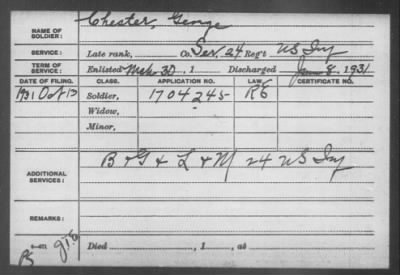 Chester, George
NAME OF
SOLDIER:
SERVICE: Late rank, Co. Ser. 24 Reg't US Inf
TERM OF
SERVICE: Enlisted Mch 30, 1 Discharged June 8, 1931
DATE OF FILING. CLASS. APPLICATION NO. LAW. CERTIFICATE NO.
1931 Oct 13 Soldier, 1704245 RE
Widow,
Minor,
B & G & L & M 24 US Inf
ADDITIONAL
SERVICES:
REMARKS:
Died , 1 , at